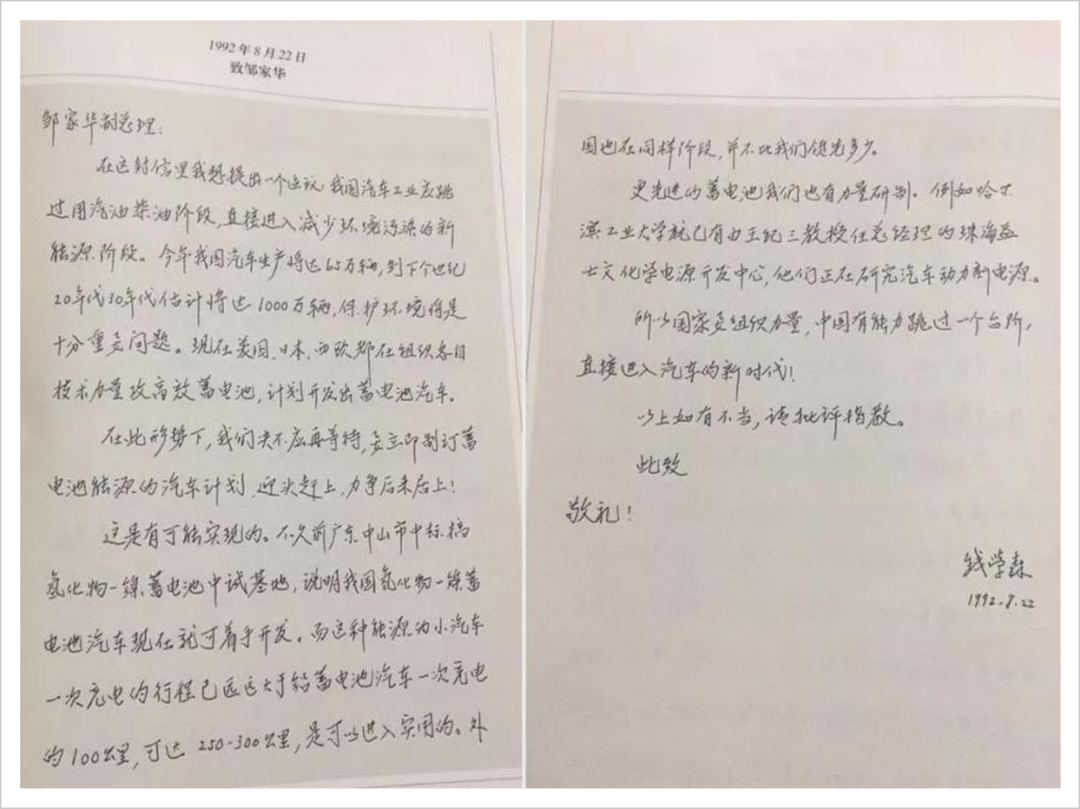 1992年8月22日
致邹家华
邹家华副总理：
在这封信里我想提出一个建议：我国汽车工业应跳
过用汽油柴油阶段，直接进入减少环境污染的新
能源阶段。今年我国汽车生产将达65万辆，到下个世纪
20年代30年代估计将达1000万辆，保护环境将是
十分重要问题。现在美国、日本、西欧都在组织各自
技术力量攻高效蓄电池，计划开发出蓄电池汽车。
在此形势下，我们决不应再等待，要立即制订蓄
电池能源的汽车计划，迎头赶上，力争后来居上！
这是有可能实现的。不久前广东中山市中标搞
氢化物一镍蓄电池中试基地，说明我国氢化物一镍蓄
电池汽车现在就可着手开发。而这种能源的小汽车
一次充电的行程已远远大于铅蓄电池汽车一次充电
的100公里，可达250-300公里，是可以进入实用的。外
国也在同样阶段，并不比我们领先多少。
更先进的蓄电池我们也有力量研制。例如哈尔
滨工业大学就已有由王纪三教授任总经理的珠海益
士文化学电源开发中心，他们正在研究汽车动力新电源。
所以国家要组织力量，中国有能力跳过一个台阶，
直接进入汽车的新时代！
以上如有不当，请批评指教。
此致
敬礼！
钱学森
1992.8.22